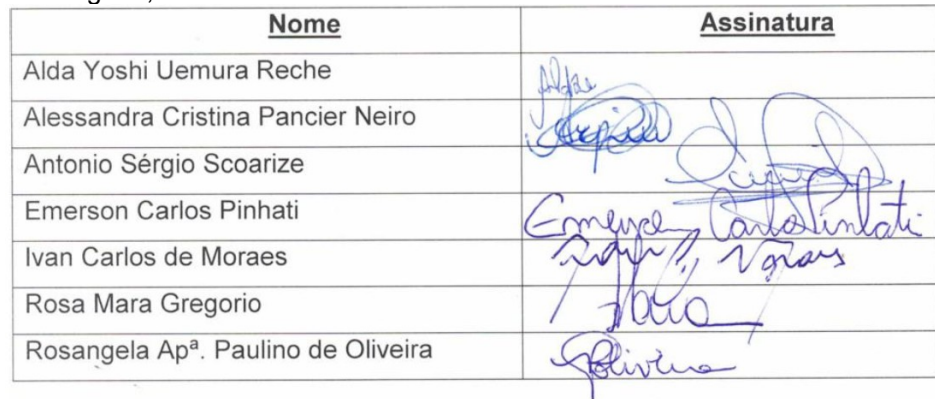 Nome Assinatura
Alda Yoshi Uemura Reche Alda
Alessandra Cristina Pancier Neiro
Antonio Sérgio Scoarize
Emerson Carlos Pinhati Emerson Carlos Pinhati
Ivan Carlos de Moraes Moraes
Rosa Mara Gregorio Mara
Rosangela Apª. Paulino de Oliveira Oliveira